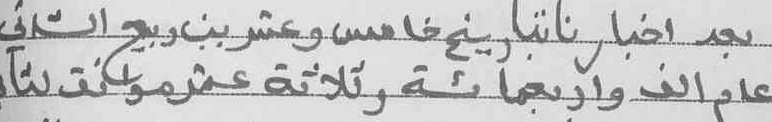 بعد اخبارنا بتاريخ خامس وعشرين ربيع الثاني
عام الف واربعمائة وثلاثة عشر موافق